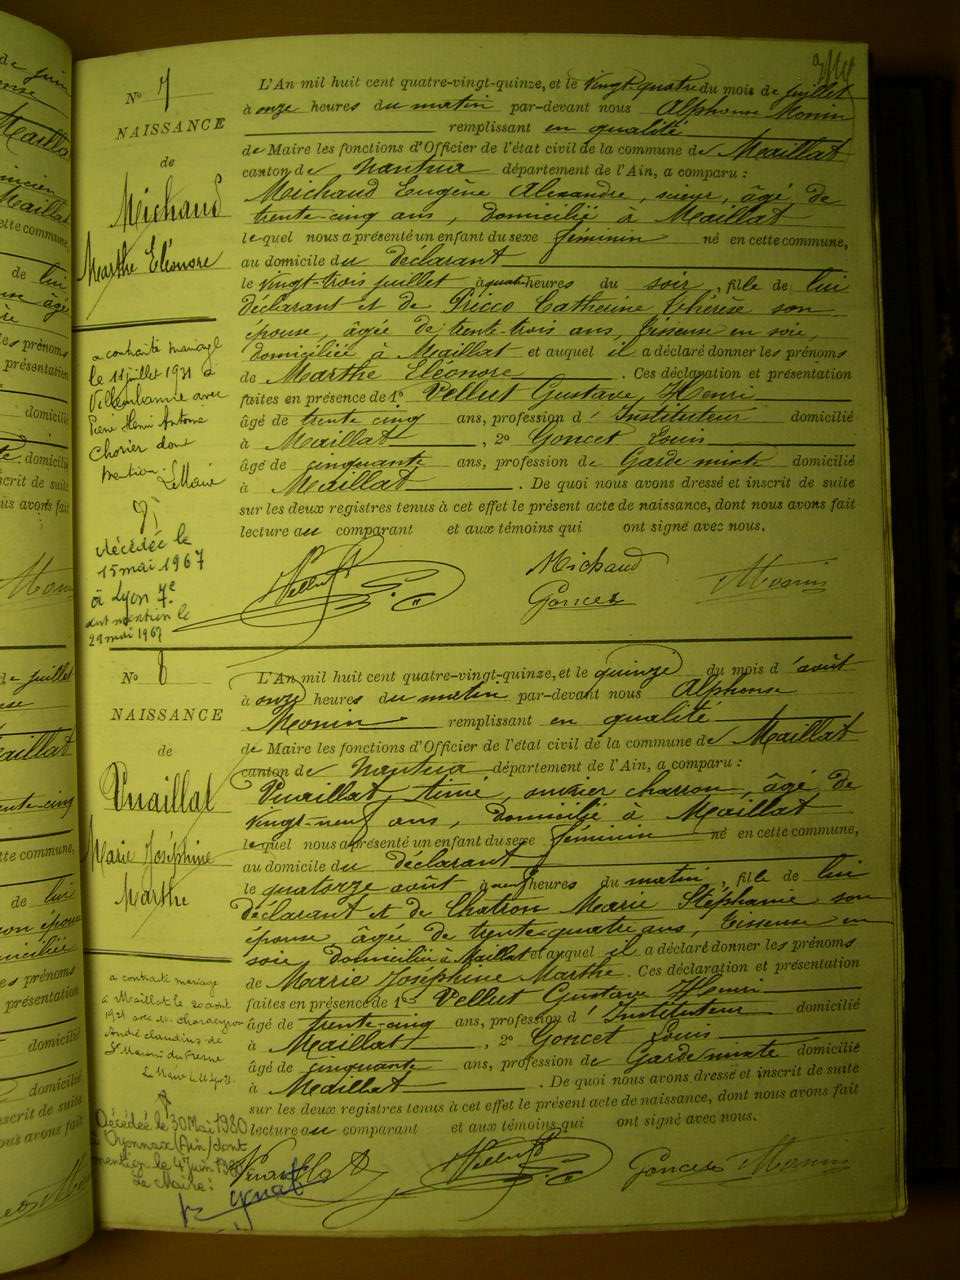 N° 7
NAISSANCE
de
Michaud
Marthe Eléonore
a contracté mariage
le 11 juillet 1921 à
Villeurbanne avec
Pierre Henri Antoine
Chorier dont
mention. Le Maire
décédée le
15 mai 1967
à Lyon 7e
dont mention le
29 mai 1967
L'An mil huit cent quatre-vingt-quinze, et le vingt-quatre du mois de juillet
à onze heures du matin par-devant nous Alphonse Monin
remplissant en qualité
de Maire les fonctions d'Officier de l'état civil de la commune de Maillat
canton de Nantua département de l'Ain, a comparu :
Michaud Eugène Alexandre, âgé de
trente-cinq ans, domicilié à Maillat
lequel nous a présenté un enfant du sexe féminin né en cette commune,
au domicile du déclarant
le vingt-trois juillet à quatre heures du soir, fille de lui
déclarant et de Catherine Thérèse son
épouse, âgée de trente-trois ans, tisseuse en soie,
domiciliée à Maillat et auquel il a déclaré donner les prénoms
de Marthe Eléonore. Ces déclaration et présentation
faites en présence de 1° Vellut Gustave Henri
âgé de trente cinq ans, profession d'Instituteur domicilié
à Maillat, 2° Goncet Louis
âgé de cinquante ans, profession de Garde mixte domicilié
à Maillat. De quoi nous avons dressé et inscrit de suite
sur les deux registres tenus à cet effet le présent acte de naissance, dont nous avons fait
lecture au comparant et aux témoins qui ont signé avec nous.
Vellut Michaud Monin
Goncet
N° 8
NAISSANCE
de
Vuaillat
Marie Joséphine
Marthe
a contracté mariage
à Maillat le 20 août
1921 avec
André Claudius de
St Martin du Fresne
Décédée le 30 Mai 1980
à Oyonnax (Ain) dont
mention le 4 Juin 1980
Le Maire :
L'An mil huit cent quatre-vingt-quinze, et le quinze du mois d'août
à onze heures du matin par-devant nous Alphonse
Monin remplissant en qualité
de Maire les fonctions d'Officier de l'état civil de la commune de Maillat
canton de Nantua département de l'Ain, a comparu :
Vuaillat Aimé, ouvrier charron, âgé de
vingt-neuf ans, domicilié à Maillat
lequel nous a présenté un enfant du sexe féminin né en cette commune,
au domicile du déclarant
le quatorze août à neuf heures du matin, fille de lui
déclarant et de Chatron Marie Stéphanie son
épouse âgée de trente-quatre ans, tisseuse en
soie, domiciliée à Maillat et auquel il a déclaré donner les prénoms
de Marie Joséphine Marthe. Ces déclaration et présentation
faites en présence de 1° Vellut Gustave Henri
âgé de trente-cinq ans, profession d'Instituteur domicilié
à Maillat, 2° Goncet Louis
âgé de cinquante ans, profession de Garde mixte domicilié
à Maillat. De quoi nous avons dressé et inscrit de suite
sur les deux registres tenus à cet effet le présent acte de naissance, dont nous avons fait
lecture au comparant et aux témoins qui ont signé avec nous.
Vuaillat Vellut Goncet Monin